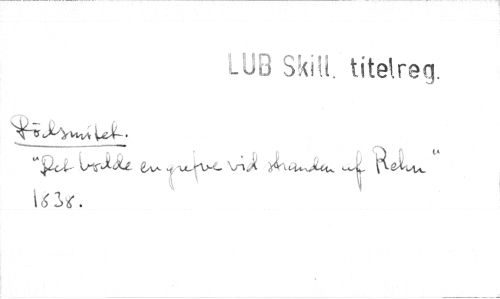 LUB Skill. titelreg.
Rödsmitet.
"Det bodde en grefve vid stranden af Rehn"
1838.